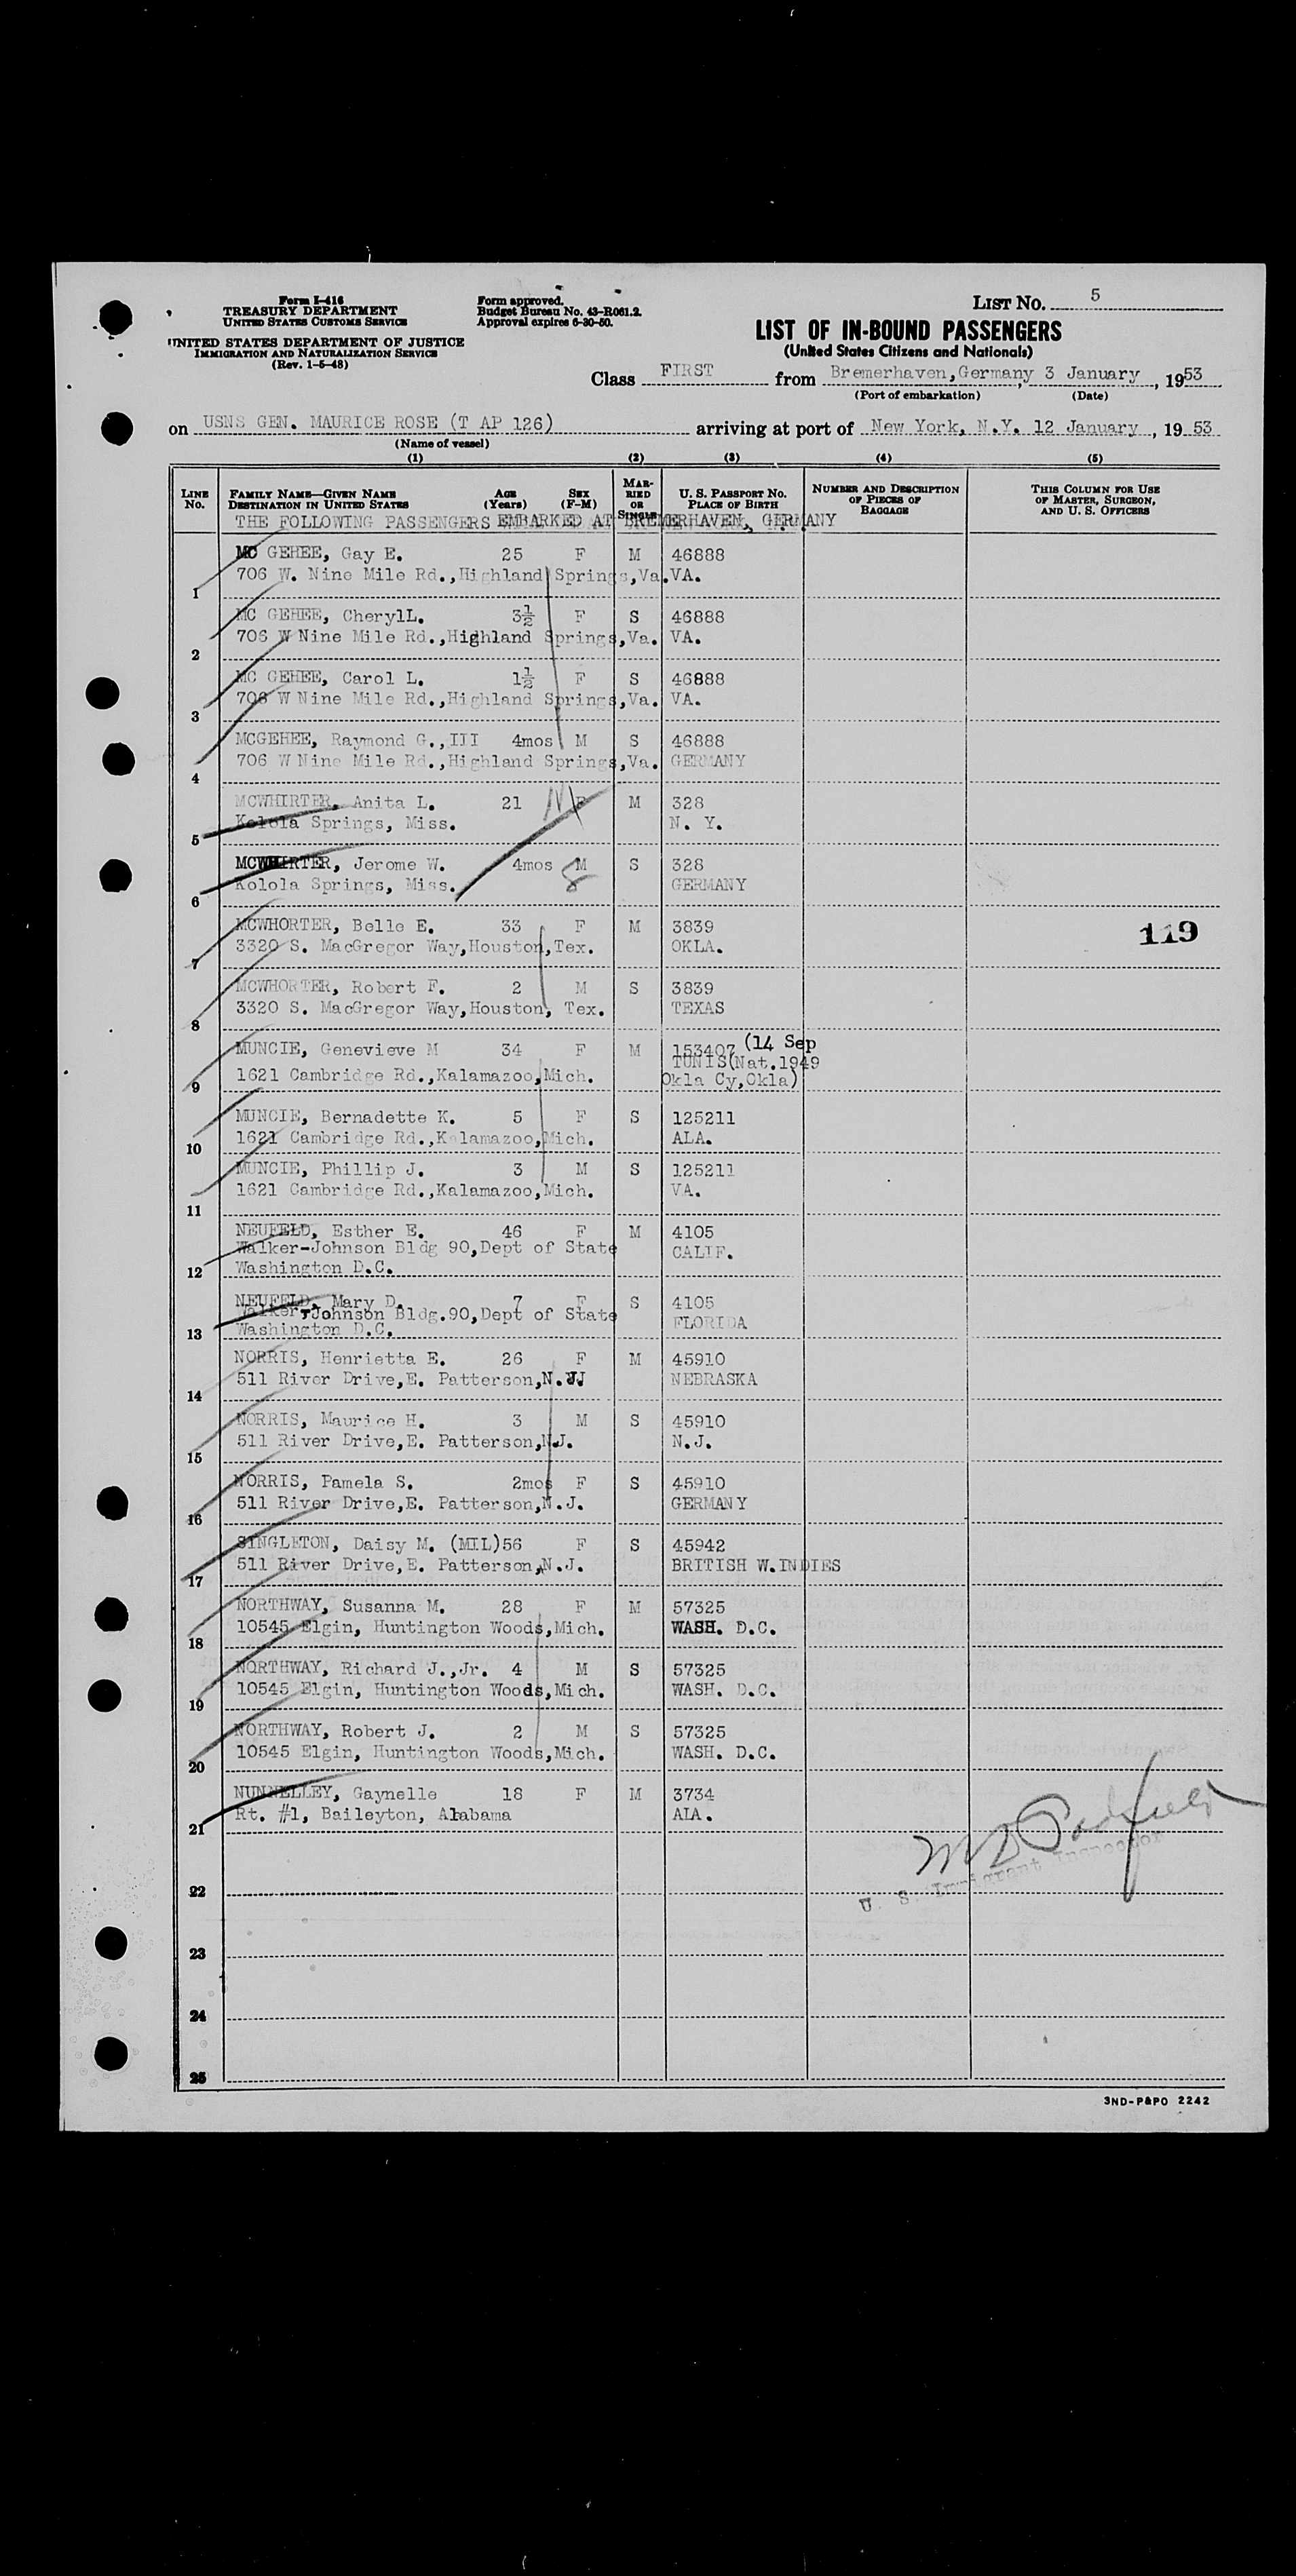 Form I-416
TREASURY DEPARTMENT
UNITED STATES CUSTOMS SERVICE
UNITED STATES DEPARTMENT OF JUSTICE
IMMIGRATION AND NATURALIZATION SERVICE
(Rev. 1-5-48)
Form approved.
Budget Bureau No. 43-R061.2.
Approval expires 6-30-50.
LIST NO. 5
LIST OF IN-BOUND PASSENGERS
(United States Citizens and Nationals)
Class FIRST from Bremerhaven, Germany, 3 January, 1953
(Port of embarkation) (Date)
on USNS GEN. MAURICE ROSE (T AP 126) arriving at port of New York, N.Y. 12 January, 1953
(Name of vessel)
(1) (2) (3) (4) (5)
LINE NO. FAMILY NAME—GIVEN NAME DESTINATION IN UNITED STATES AGE (Years) SEX (F-M) MARRIED OR SINGLE U. S. PASSPORT NO. PLACE OF BIRTH NUMBER AND DESCRIPTION OF PIECES OF BAGGAGE THIS COLUMN FOR USE OF MASTER, SURGEON, AND U. S. OFFICERS
THE FOLLOWING PASSENGERS EMBARKED AT BREMERHAVEN, GERMANY
MC GEHEE, Gay E. 25 F M 46888
1 706 W. Nine Mile Rd.,Highland Springs,Va. VA.
MC GEHEE, CherylL. 3½ F S 46888
2 706 W Nine Mile Rd.,Highland Springs,Va. VA.
MC GEHEE, Carol L. 1½ F S 46888
3 706 W Nine Mile Rd.,Highland Springs,Va. VA.
MCGEHEE, Raymond G.,III 4mos M S 46888
4 706 W Nine Mile Rd.,Highland Springs,Va. GERMANY
MCWHIRTER, Anita L. 21 F M 328
5 Kolola Springs, Miss. N. Y.
MCWHIRTER, Jerome W. 4mos M S 328
6 Kolola Springs, Miss. GERMANY
MCWHORTER, Belle E. 33 F M 3839 119
7 3320 S. MacGregor Way,Houston,Tex. OKLA.
MCWHORTER, Robert F. 2 M S 3839
8 3320 S. MacGregor Way,Houston, Tex. TEXAS
MUNCIE, Genevieve M 34 F M 153407 (14 Sep
TUNIS(Nat.1949
9 1621 Cambridge Rd.,Kalamazoo,Mich. Okla Cy,Okla)
MUNCIE, Bernadette K. 5 F S 125211
10 1621 Cambridge Rd.,Kalamazoo,Mich. ALA.
MUNCIE, Phillip J. 3 M S 125211
11 1621 Cambridge Rd.,Kalamazoo,Mich. VA.
NEUFELD, Esther E. 46 F M 4105
Walker-Johnson Bldg 90,Dept of State CALIF.
12 Washington D.C.
NEUFELD, Mary D. 7 F S 4105
Walker-Johnson Bldg.90,Dept of State FLORIDA
13 Washington D.C.
NORRIS, Henrietta E. 26 F M 45910
14 511 River Drive,E. Patterson,N.J. NEBRASKA
NORRIS, Maurice H. 3 M S 45910
15 511 River Drive,E. Patterson,N.J. N.J.
NORRIS, Pamela S. 2mos F S 45910
16 511 River Drive,E. Patterson,N.J. GERMANY
SINGLETON, Daisy M. (MIL)56 F S 45942
17 511 River Drive,E. Patterson,N.J. BRITISH W.INDIES
NORTHWAY, Susanna M. 28 F M 57325
18 10545 Elgin, Huntington Woods,Mich. WASH. D.C.
NORTHWAY, Richard J.,Jr. 4 M S 57325
19 10545 Elgin, Huntington Woods,Mich. WASH. D.C.
NORTHWAY, Robert J. 2 M S 57325
20 10545 Elgin, Huntington Woods,Mich. WASH. D.C.
NUNNELLEY, Gaynelle 18 F M 3734
21 Rt. #1, Baileyton, Alabama ALA.
22
U. S. Immigrant Inspector
23
24
25
3ND-P&PO 2242